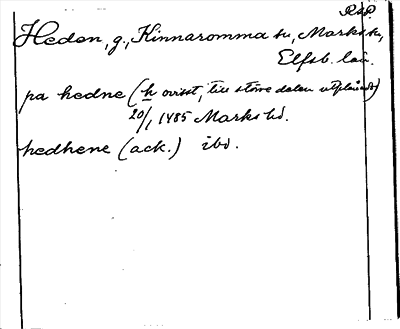 RAP.
Heden, g., Kinnaromma sn, Marks hd,
Elfsb. län.
pa hedne (h ovisst, till större delen utplånadt)
20/1 1485 Marks hd.
hedhene (ack.) ibd.